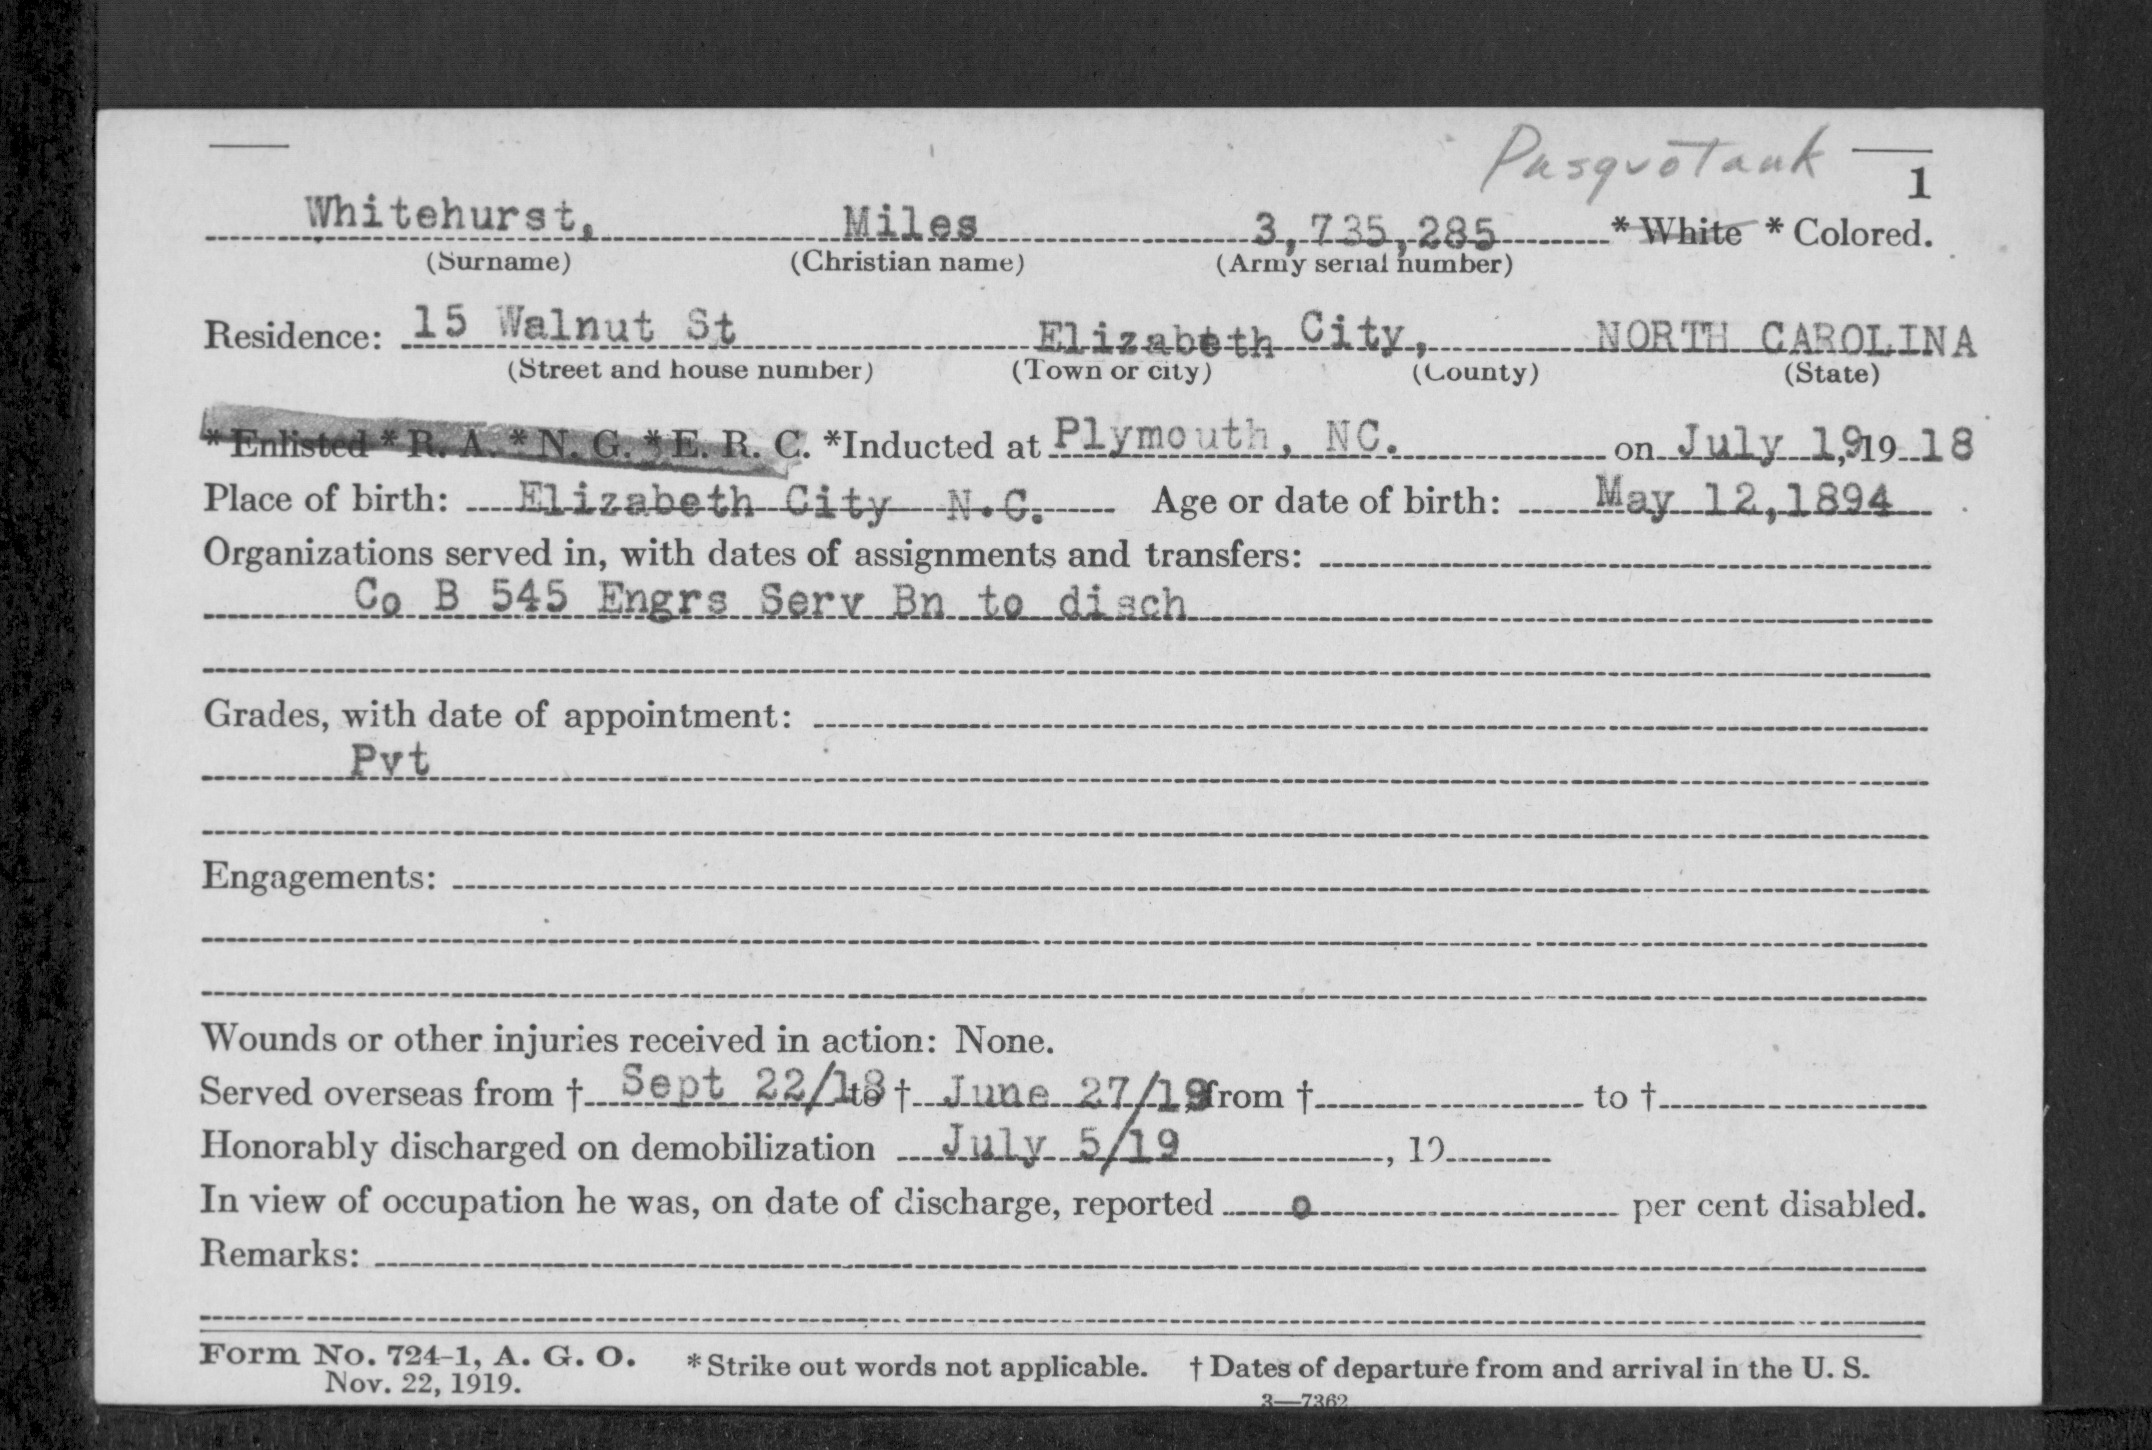 Pasquotank
1
Whitehurst, Miles 3,735,285 * White * Colored.
(Surname) (Christian name) (Army serial number)
Residence: 15 Walnut St Elizabeth City, NORTH CAROLINA
(Street and house number) (Town or city) (County) (State)
* Enlisted * R. A. * N. G. * E. R. C. *Inducted at Plymouth, NC. on July 19, 19 18
Place of birth: Elizabeth City N.C. Age or date of birth: May 12,1894
Organizations served in, with dates of assignments and transfers:
Co B 545 Engrs Serv Bn to disch
Grades, with date of appointment:
Pvt
Engagements:
Wounds or other injuries received in action: None.
Served overseas from † Sept 22/18 to † June 27/19, from † to †
Honorably discharged on demobilization July 5/19, 19
In view of occupation he was, on date of discharge, reported 0 per cent disabled.
Remarks:
Form No. 724-1, A. G. O. * Strike out words not applicable. † Dates of departure from and arrival in the U. S.
Nov. 22, 1919.
3—7362